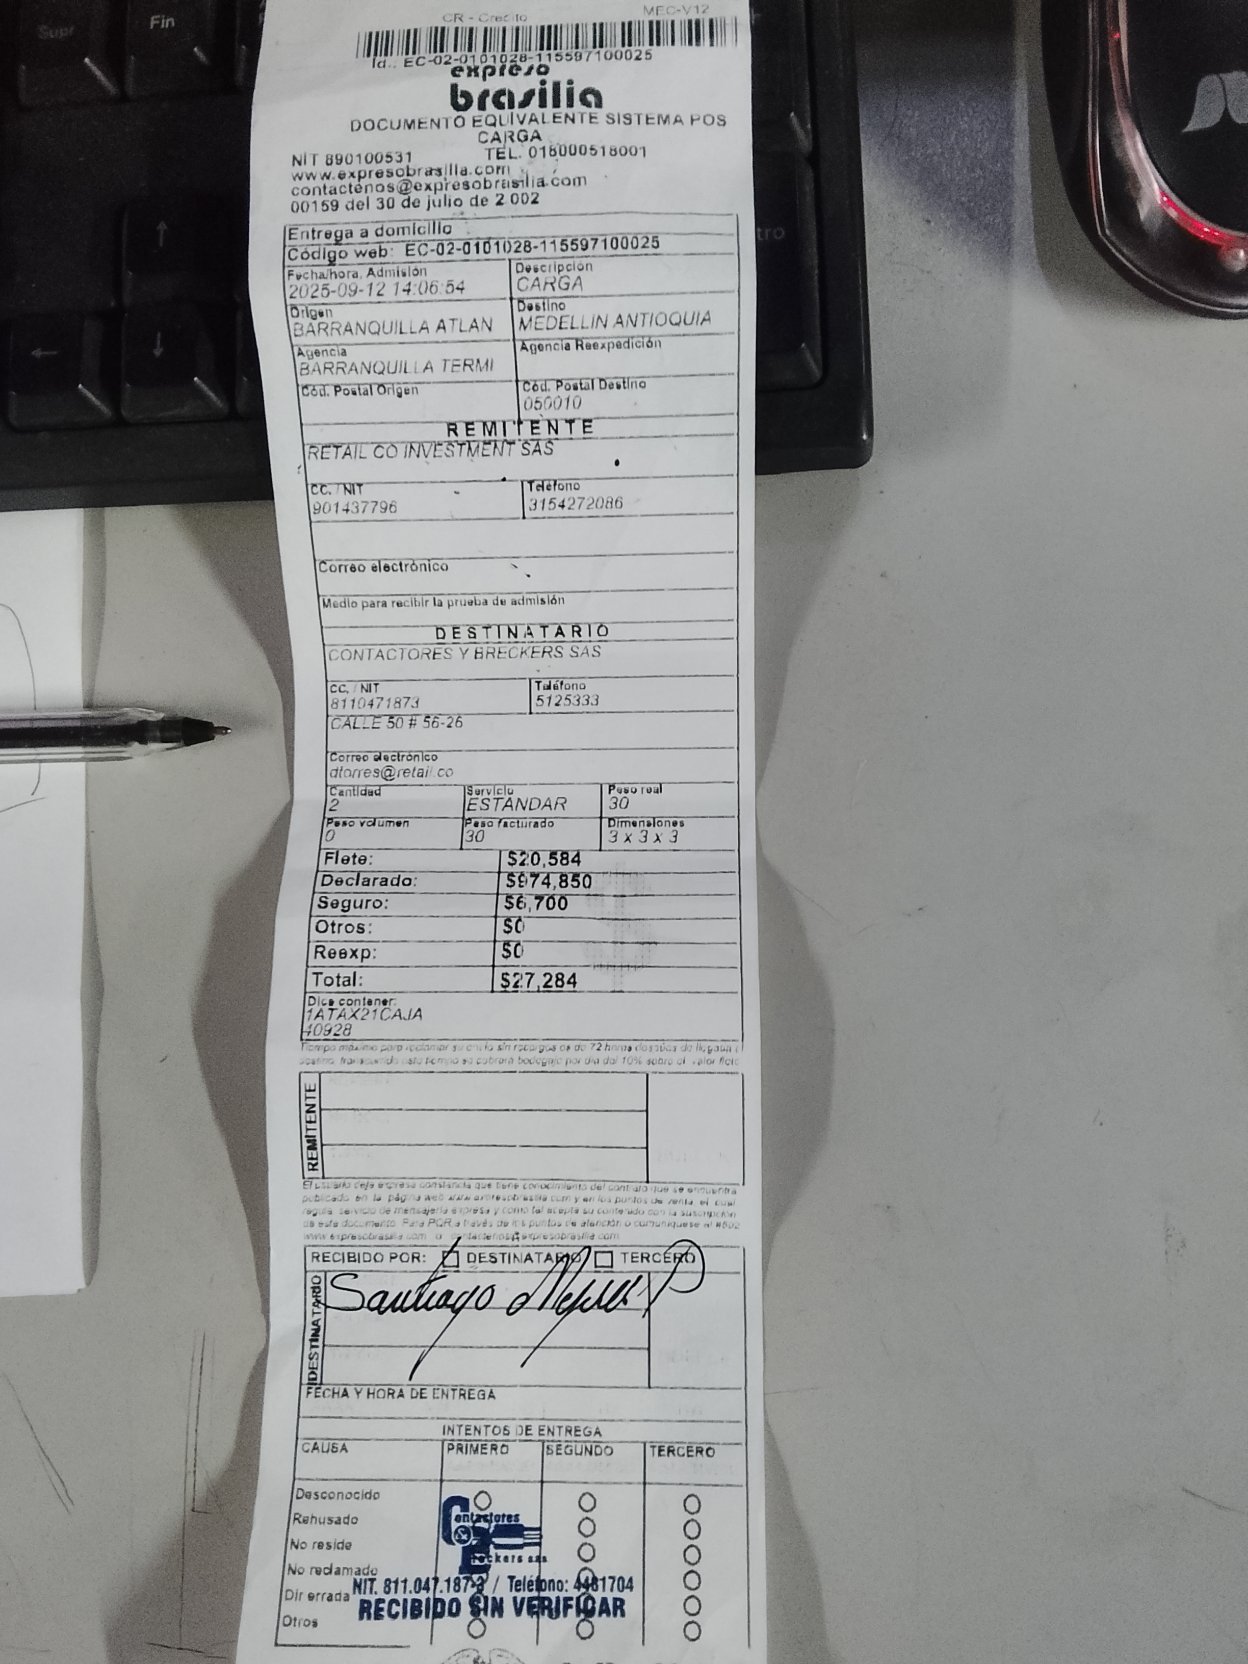 Supr
Fin
CR - Credito
MEC-V12
Id.: EC-02-0101028-115597100025
expreso
brasilia
DOCUMENTO EQUIVALENTE SISTEMA POS
CARGA
NIT 890100531 TEL. 018000518001
www.expresobrasilia.com
contactenos@expresobrasilia.com
00159 del 30 de julio de 2 002
Entrega a domicilio
Código web: EC-02-0101028-115597100025
Fecha/hora, Admisión
2025-09-12 14:06:54
Descripción
CARGA
Origen
BARRANQUILLA ATLAN
Destino
MEDELLIN ANTIOQUIA
Agencia
BARRANQUILLA TERMI
Agencia Reexpedición
Cód. Postal Origen
Cód. Postal Destino
050010
REMITENTE
RETAIL CO INVESTMENT SAS
CC. / NIT
901437796
Teléfono
3154272086
Correo electrónico
Medio para recibir la prueba de admisión
DESTINATARIO
CONTACTORES Y BRECKERS SAS
CC. / NIT
8110471873
Teléfono
5125333
CALLE 50 # 56-26
Correo electrónico
dtorres@retail.co
Cantidad
2
Servicio
ESTANDAR
Peso real
30
Peso volumen
0
Peso facturado
30
Dimensiones
3 x 3 x 3
Flete: $20,584
Declarado: $974,850
Seguro: $6,700
Otros: $0
Reexp: $0
Total: $27,284
Dice contener:
1ATAX21CAJA
40928
Tiempo máximo para reclamar su envío sin recargos es de 72 horas después de llegada
destino, transcurrido este tiempo se cobrará bodegaje por día del 10% sobre el valor flete
REMITENTE
El usuario deja expresa constancia que tiene conocimiento del contrato que se encuentra
publicado en la página web www.expresobrasilia.com y en los puntos de venta, el cual
regula servicio de mensajería expresa y como tal acepta su contenido con la suscripción
de este documento. Para PQR a través de los puntos de atención o comuníquese al #502
www.expresobrasilia.com o contactenos@expresobrasilia.com
RECIBIDO POR: DESTINATARIO TERCERO
DESTINATARIO
Santiago
FECHA Y HORA DE ENTREGA
INTENTOS DE ENTREGA
CAUSA PRIMERO SEGUNDO TERCERO
Desconocido
Rehusado
No reside
No reclamado
Dir errada
Otros
Contactores
Breckers s.a.s
NIT. 811.047.187-3 / Teléfono: 4481704
RECIBIDO SIN VERIFICAR